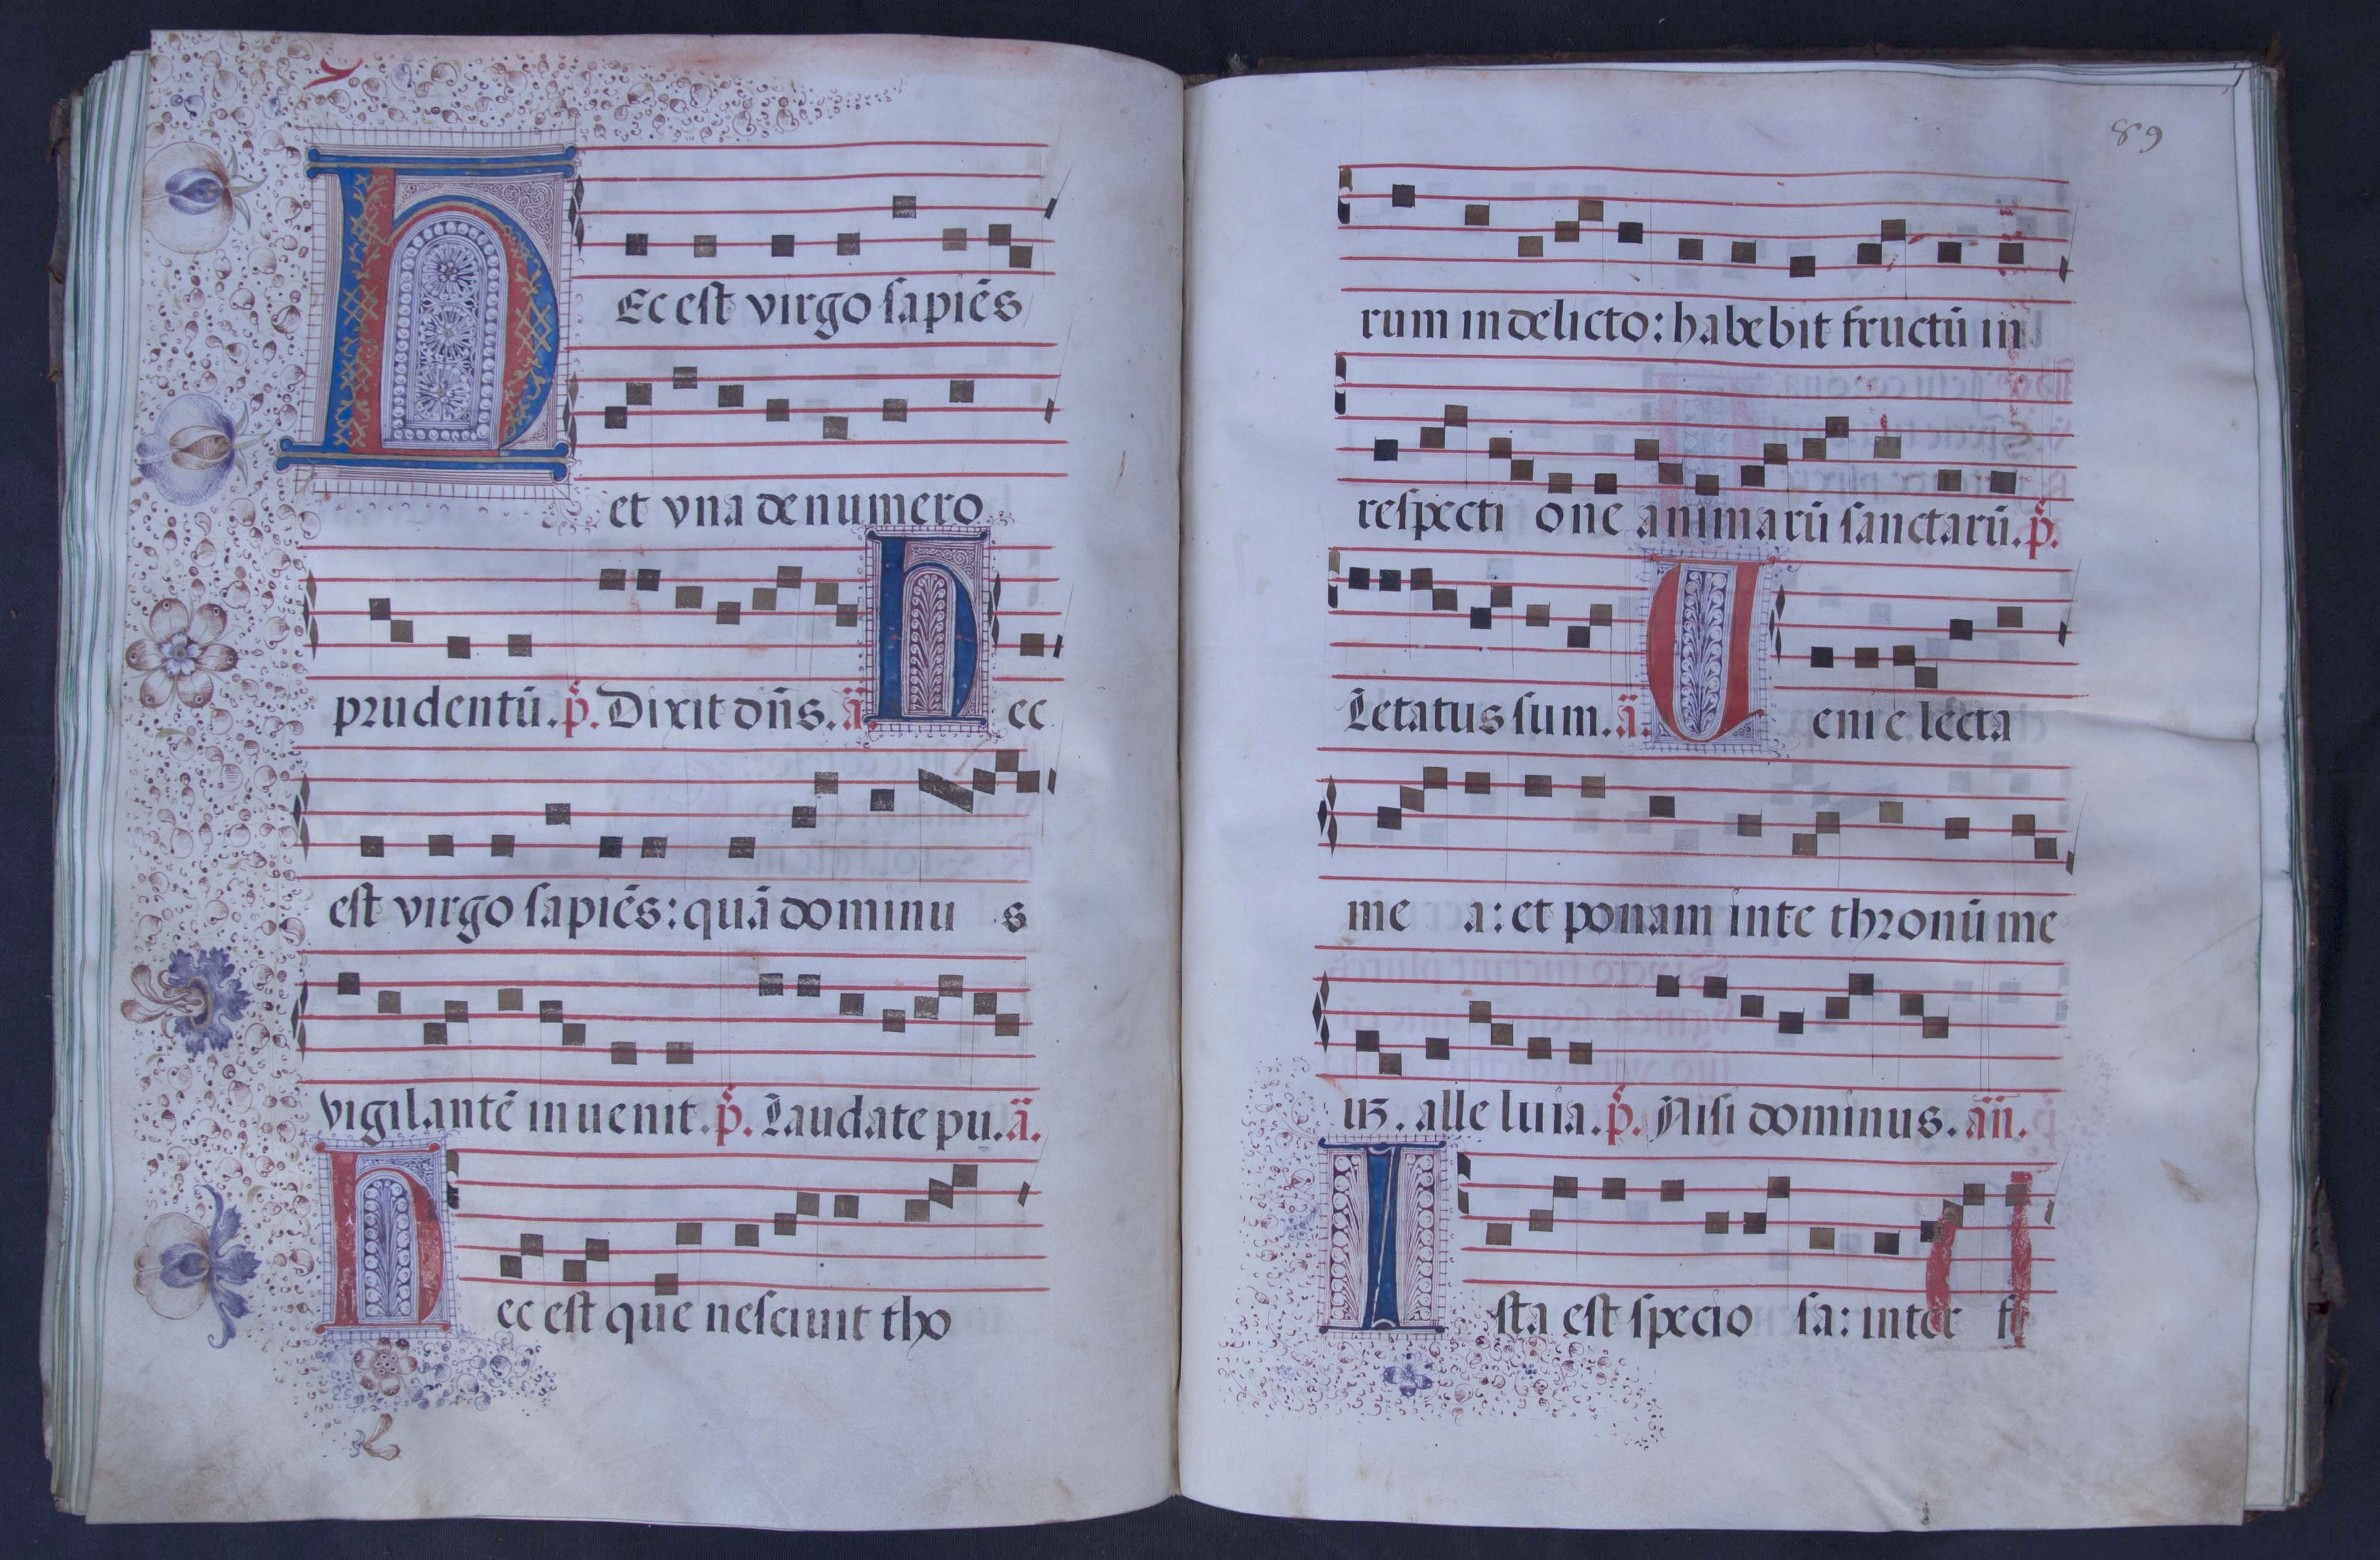 HEc est virgo sapiẽs
et vna de numero
prudentũ. p̃. Dixit dñs. ã. Hec
est virgo sapiẽs: quã dominus
vigilantẽ inuenit. p̃. Laudate pu. ã.
Hec est que nesciuit tho
89
rum in delicto: habebit fructũ in
respectione animarũ sanctarũ. p̃.
Letatus sum. ã. Ueni electa
mea: et ponam in te thronũ me
uz. alleluia. p̃. Nisi dominus. añ.
Ista est speciosa: inter fi